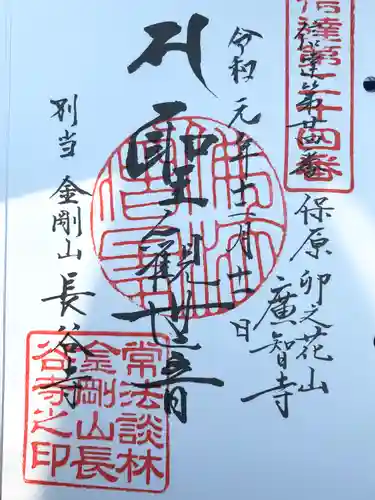 信達第二十四番
信達第廿四番
保原 卯之花山
廣智寺
令和元年十一月十一日
聖観世音
別当 金剛山 長谷寺
常法談林
金剛山長
谷寺之印